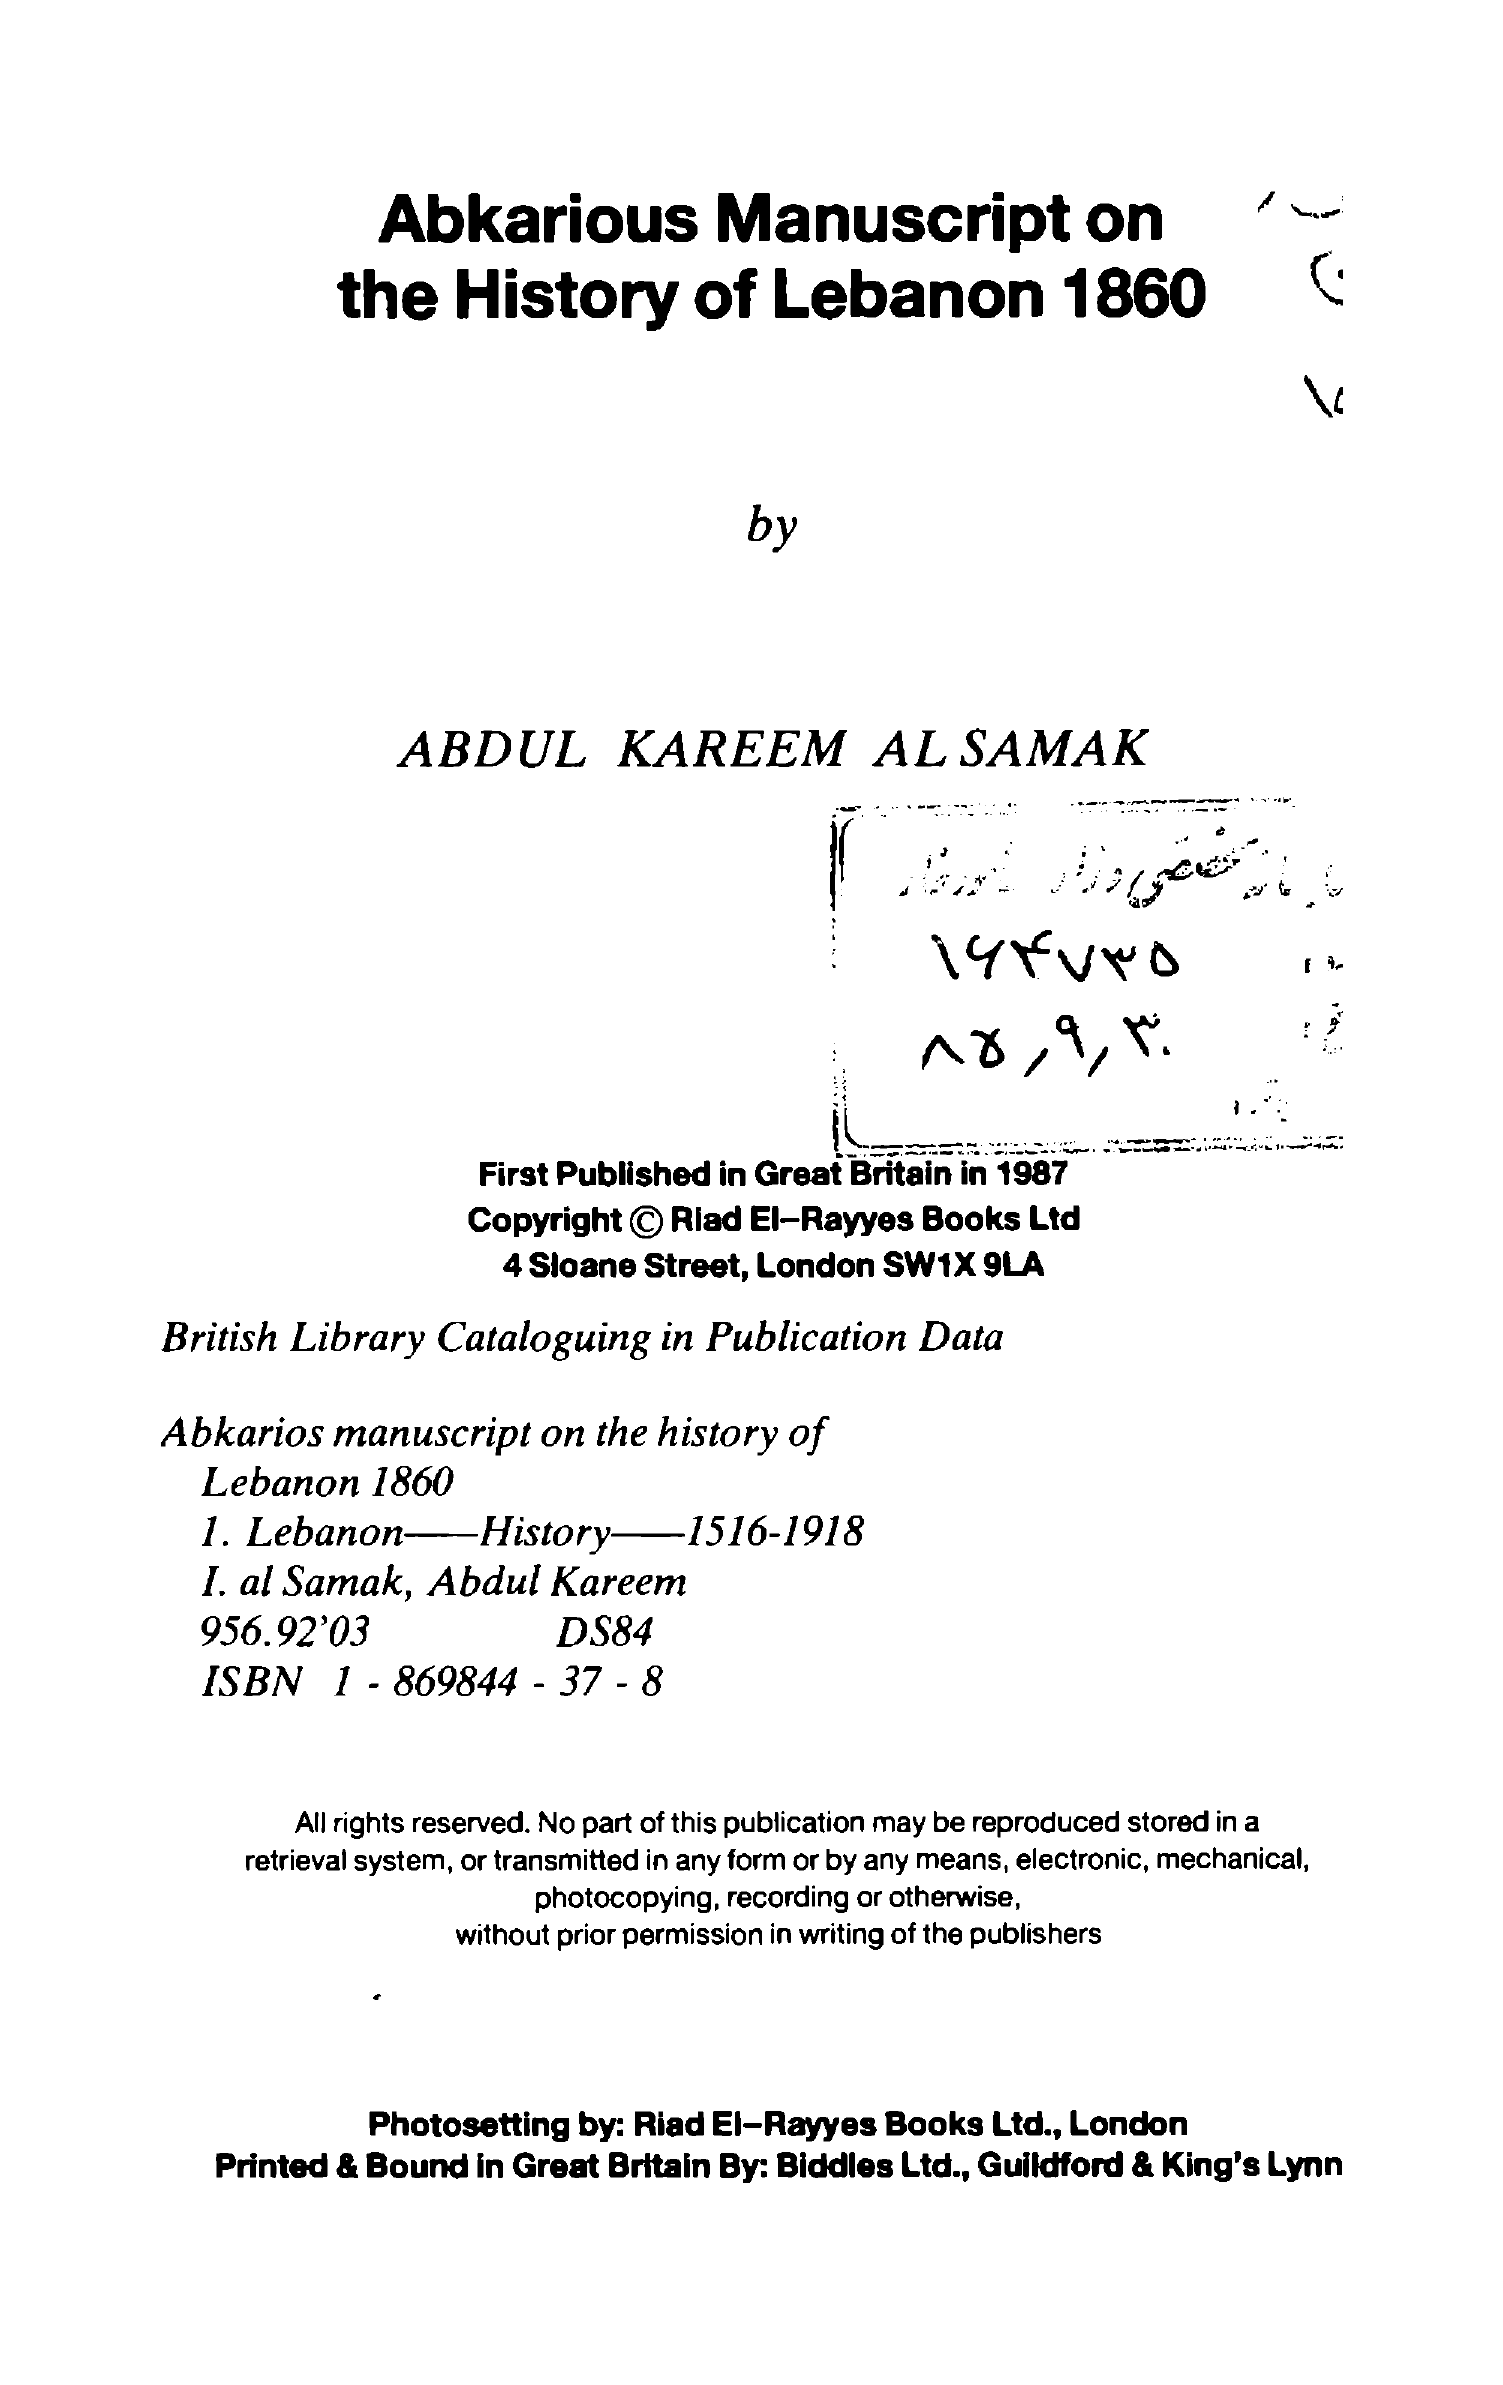 Abkarious Manuscript on
the History of Lebanon 1860
by
ABDUL KAREEM AL SAMAK
۱۶۴۷۳۵
۸۵,۹,۳۰
First Published in Great Britain in 1987
Copyright © Riad El–Rayyes Books Ltd
4 Sloane Street, London SW1X 9LA
British Library Cataloguing in Publication Data
Abkarios manuscript on the history of
Lebanon 1860
1. Lebanon——History——1516-1918
I. al Samak, Abdul Kareem
956.92’03 DS84
ISBN 1 - 869844 - 37 - 8
All rights reserved. No part of this publication may be reproduced stored in a
retrieval system, or transmitted in any form or by any means, electronic, mechanical,
photocopying, recording or otherwise,
without prior permission in writing of the publishers
Photosetting by: Riad El–Rayyes Books Ltd., London
Printed & Bound in Great Britain By: Biddles Ltd., Guildford & King's Lynn